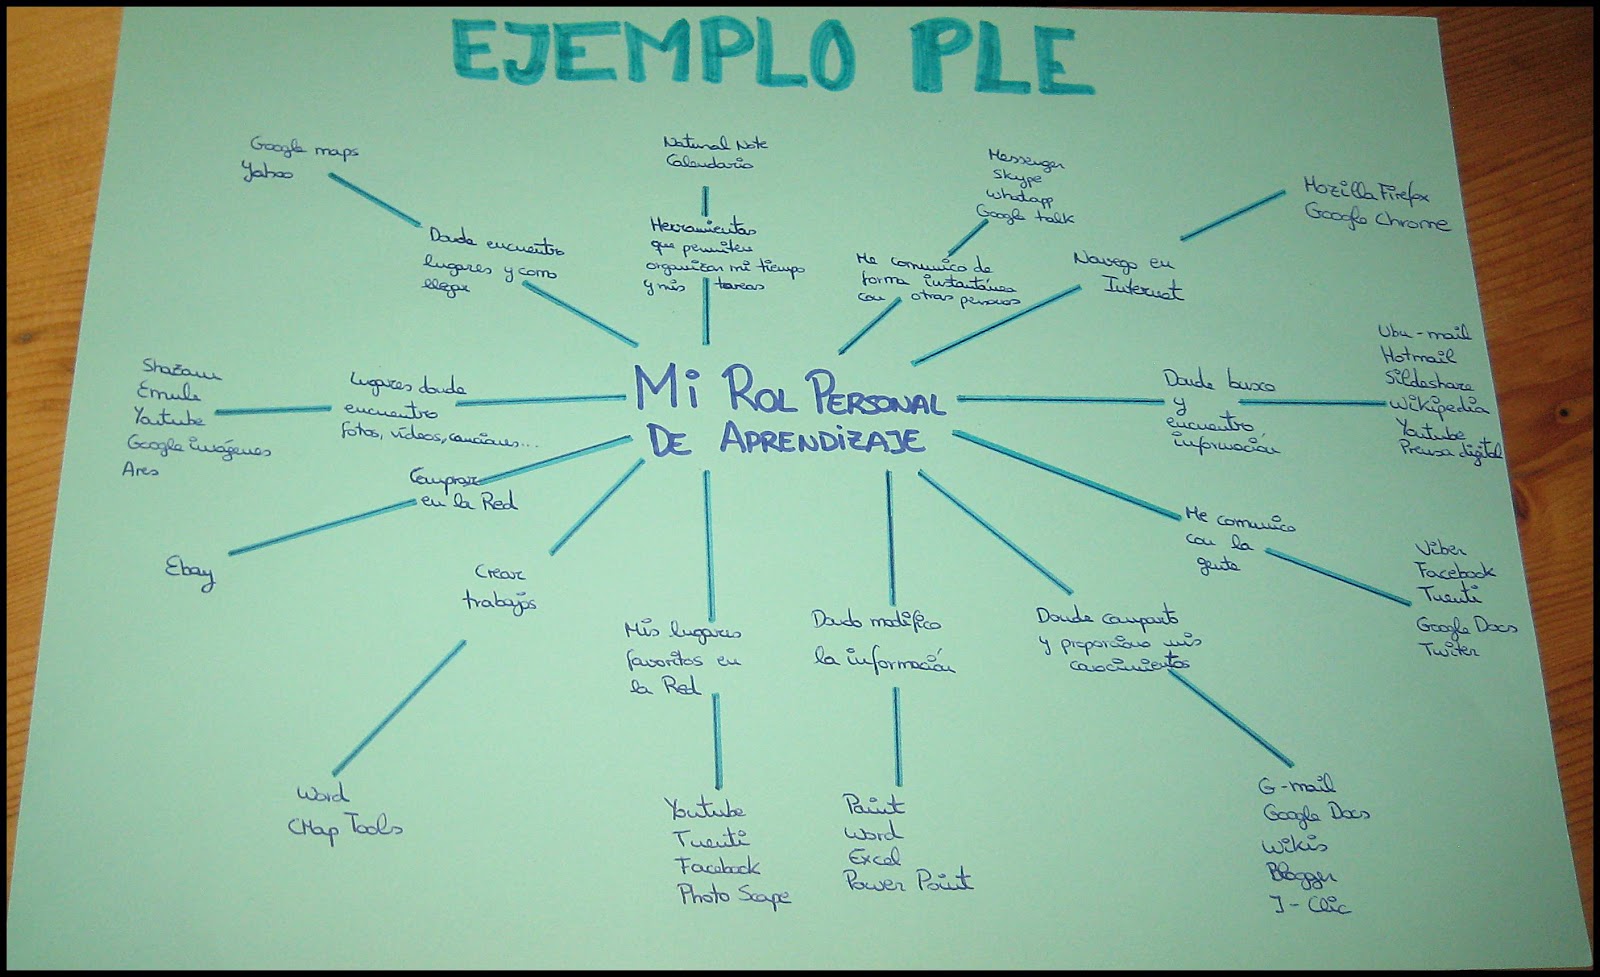 EJEMPLO PLE
Google maps
Yahoo
Donde encuentro
lugares y como
llegar
Natural Note
Calendario
Herramientas
que permiten
organizar mi tiempo
y mis tareas
Messenger
Skype
Whatapp
Google talk
Me comunico de
forma instantánea
con otras personas
Mozilla Firefox
Google Chrome
Navego en
Internet
Shazam
Emule
Youtube
Google imágenes
Ares
Lugares donde
encuentro
fotos, vídeos, canciones...
MI ROL PERSONAL
DE APRENDIZAJE
Donde busco
y
encuentro
información
Ubu-mail
Hotmail
Sildeshare
Wikipedia
Youtube
Prensa digital
Comprar
en la Red
Ebay
Me comunico
con la
gente
Viber
Facebook
Tuenti
Google Docs
Twiter
Crear
trabajos
Word
CMap Tools
Mis lugares
favoritos en
la Red
Youtube
Tuenti
Facebook
Photo Scape
Dondo modifico
la información
Paint
Word
Excel
Power Point
Donde comparto
y proporciono mis
conocimientos
G-mail
Google Docs
Wikis
Blogger
J-Clic